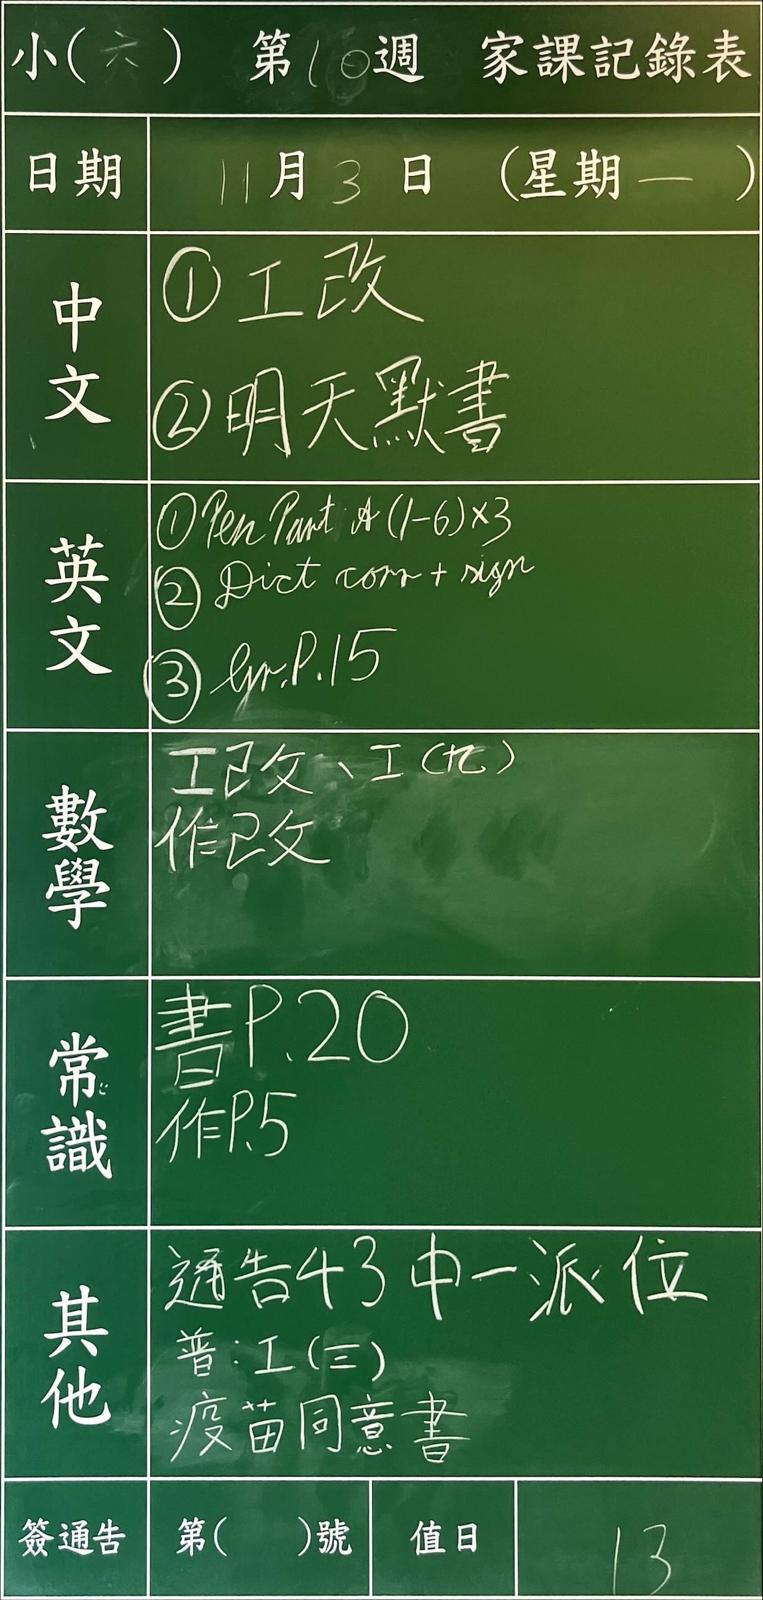 小(六) 第10週 家課記錄表
日期 11月3日 (星期一)
中文
①工改
②明天默書
英文
①Pen Part A (1-6)×3
②Dict corr + sign
③Gr.P.15
數學
工改、工(九)
作改
常識
書P.20
作P.5
其他
通告43中一派位
普:工(三)
疫苗同意書
簽通告 第( )號 值日 13